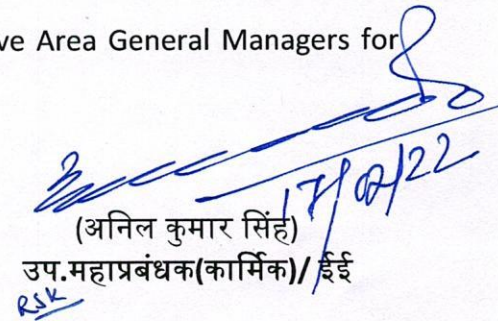 ve Area General Managers for
17/02/22
(अनिल कुमार सिंह)
उप.महाप्रबंधक(कार्मिक)/ ईई
RSK